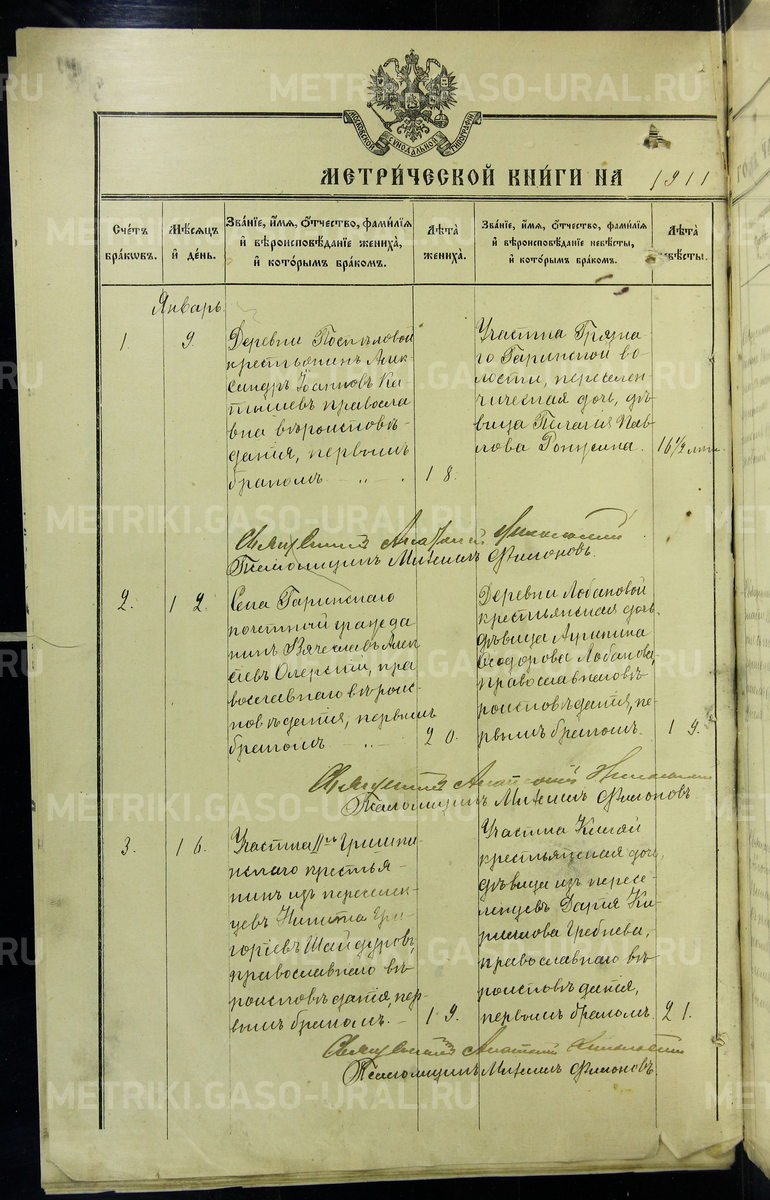 МОСКОВСКОЙ СѴНОДАЛЬНОЙ ТИПОГРАФІИ
МЕТРИ́ЧЕСКОЙ КНИ́ГИ НА 1911
Сче́тъ бра́кѡвъ.
Мѣ́сяцъ и҆ де́нь.
Зва́нїе, и҆́мѧ, ѻ҆́тчество, фами́лїѧ и҆ вѣроисповѣ́данїе жениха̀, и҆ кото́рымъ бра́комъ.
Лѣ́та жениха̀.
Зва́нїе, и҆́мѧ, ѻ҆́тчество, фами́лїѧ и҆ вѣроисповѣ́данїе невѣ́сты, и҆ кото́рымъ бра́комъ.
Лѣ́та невѣ́сты.
Январь
1. 9.
Деревни Поспѣловой
крестьянинъ Алек-
сандръ Іоанновъ Ка-
тышевъ православ-
на вѣроисповѣ-
данія, первымъ
бракомъ — „ — . 18.
Участка Грязна-
го Гаринской во-
лости, переселен-
ческая дочь, дѣ-
вица Пелагія Пав-
лова . 16 ½ лѣтъ.
Священникъ
Псаломщикъ Михаилъ Филоновъ.
2. 12.
Села Гаринскаго
почетный гражда-
нинъ Вячеславъ Алек-
сѣевъ Олерскій, пра-
вославнаго вѣроис-
повѣданія, первымъ
бракомъ — „ — 20.
Деревни Лобановой
крестьянская дочь,
дѣвица Агрипина
Ѳеодорова Лобанова,
православнаго вѣ-
роисповѣданія, пе-
рвымъ бракомъ. 19.
Священникъ
Псаломщикъ Михаилъ Филоновъ
3. 16.
Участка
крестья-
нинъ изъ переселен-
цевъ Никита Гри-
горіевъ Шайдуровъ,
православнаго вѣ-
роисповѣданія, пер-
вымъ бракомъ. — 19.
Участка
крестьянская дочь,
дѣвица изъ пересе-
ленцевъ Дарія Ки-
риллова Гребнева,
православнаго вѣ-
роисповѣданія,
первымъ бракомъ. 21.
Священникъ
Псаломщикъ Михаилъ Филоновъ.
METRIKI.GASO-URAL.RU